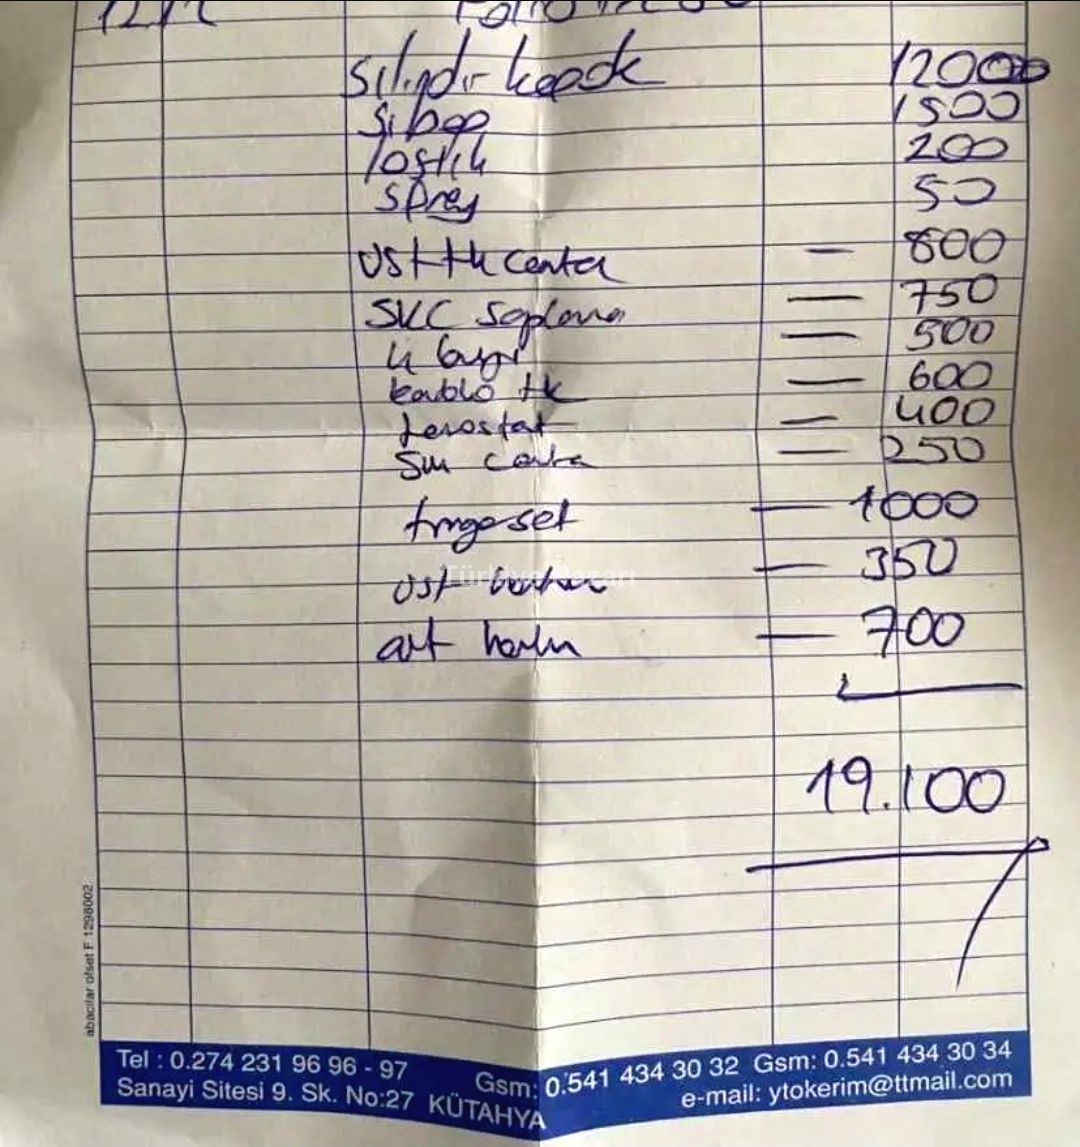 silindir kapak 12000
sibop 1500
lastik 200
sprey 50
üst tk conta — 800
SKC saplama — 750
4 buji — 500
kablo tk — 600
termostat — 400
Sm conta — 250
trigerset — 1000
üst — 350
alt — 700
19.100
Türkiye Pazarı
abacılar ofset F 1298002
Tel : 0.274 231 96 96 - 97 Gsm: 0.541 434 30 32 Gsm: 0.541 434 30 34
Sanayi Sitesi 9. Sk. No:27 KÜTAHYA e-mail: ytokerim@ttmail.com